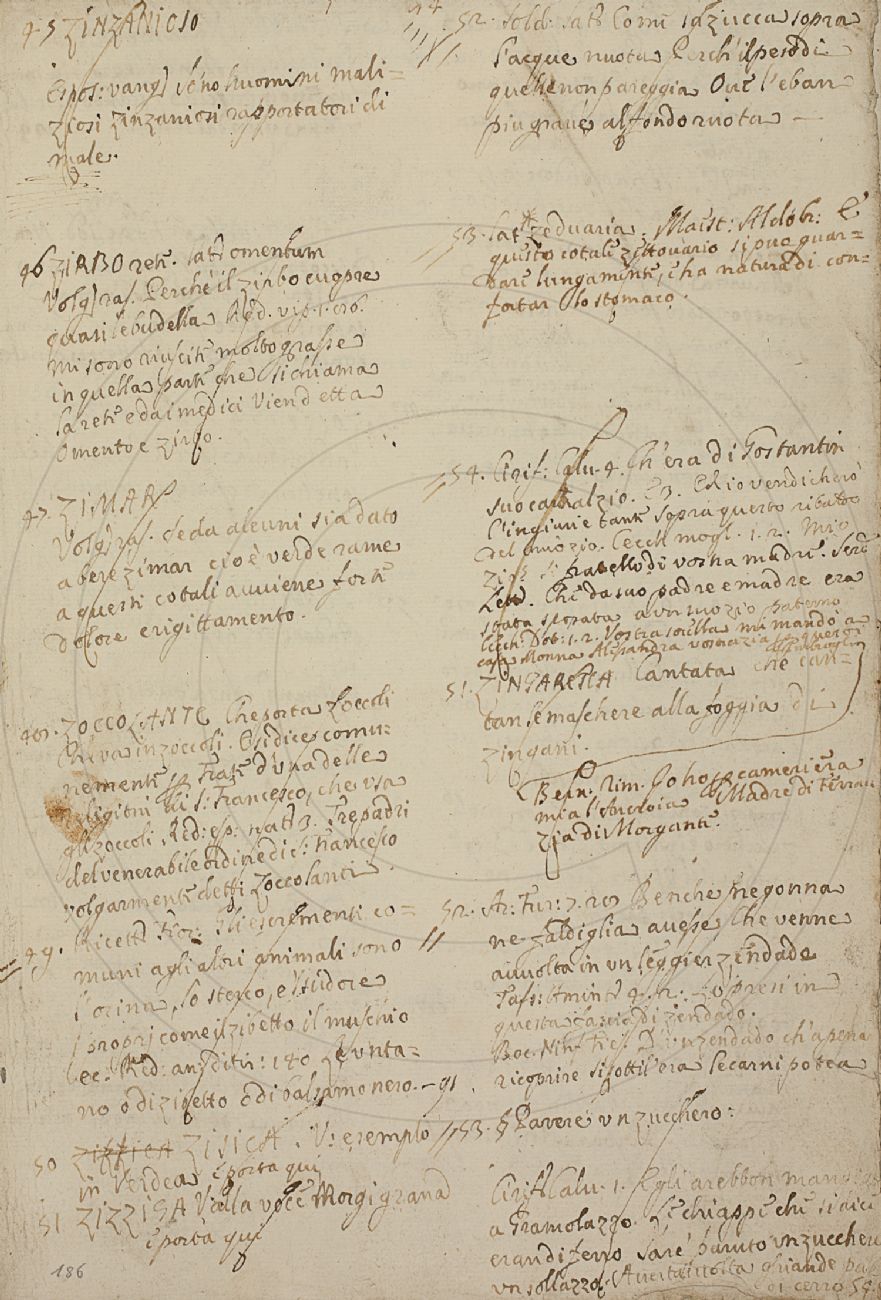 45 ZINZANIOSO
Espos: vang) seno huomini mali=
ziosi zinzaniosi rapportatori di
male.
46 ZIRBO rete. latt omentum
Volg) ras. Perche il zirbo cuopre
quasi le budella Red.
mi sono riuscite molto grasse
in quella parte che si chiama
la rete e da i medici vien detta
Omento e zirbo.
47. ZIMAR
Volg) ras. Se da alcuni sia dato
a bere zimar cioè verderame
a questi cotali avviene forte
dolore e rigittamento.
48. ZOCCOLANTE Che porta zoccoli
Che va in zoccoli. E si dice comu=
nemente Frate d'una delle
religioni di S. Francesco, che usa
gli zoccoli. Red: esp: nat) 3. Tre padri
del venerabile ordine di S. Francesco
volgarmente detti zoccolanti.
49. Ricett) Fior: Gli escrementi co=
muni agli altri animali sono
l'orina, lo sterco, e 'l sudore
i proprj come il zibetto il muschio
ec. Red: an: ditir: 140
no o di zibetto o di balsamo nero. — 91
50 ZIZICA. V: esempio
in Verdea e porta qui
51 ZIZZIGA V alla voce Morgigrana
e porta qui
186
52. Sold: Sat) Come zucca sopra
l'acque nuota Perch' il peso di
quelle non pareggia Ove l'eban
piu grave al fondo ruota —
53. Lat) zeduaria. Maest: Aldobr: E
questo cotale zettovario si puo guar=
dare lungamente, e ha natura di con=
fortar lo stomaco.
54. Cirif: Calv. 4. Ch'era di Gostantin
suo carnal zio. E 3. Ed io vendicherò
l'ingiurie tante sopra questo ribaldo
del mio zio. Cecch. mogl. 1. 2. Mio
zio fratello di vostra madre.
Che da suo padre e madre era
stata sposata a un zio paterno
Cecch: Dot: 1. 2. Vostra sorella mi mandò a
casa Monna Alessandra vostra zia
51. ZINGARESCA Cantata che can=
tan le maschere alla foggia di
zingani.
Bern. Rim. Io ho per cameriera
mia l'Ancroia Madre di Ferrau
zia di Morgante.
52. Ar: Fur: 7. 28 Benche ne gonna
ne faldiglia avesse Che venne
avvolta in un leggier zendado
Tass: Amint) 4. 2. — io presi in
questa fascia di zendado.
Boc. Ninf. Fies. D'un zendado ch'apena
ricoprire si sottil era le carni potea
53. § Parere un zucchero:
Cirif) Calv. 1. Egli arebbon mangiato
a Gramolazzo. Le chiappe che si dice
eran di ferro Sare' paruto un zucchero
un sollazzo. ghiande
di cerro